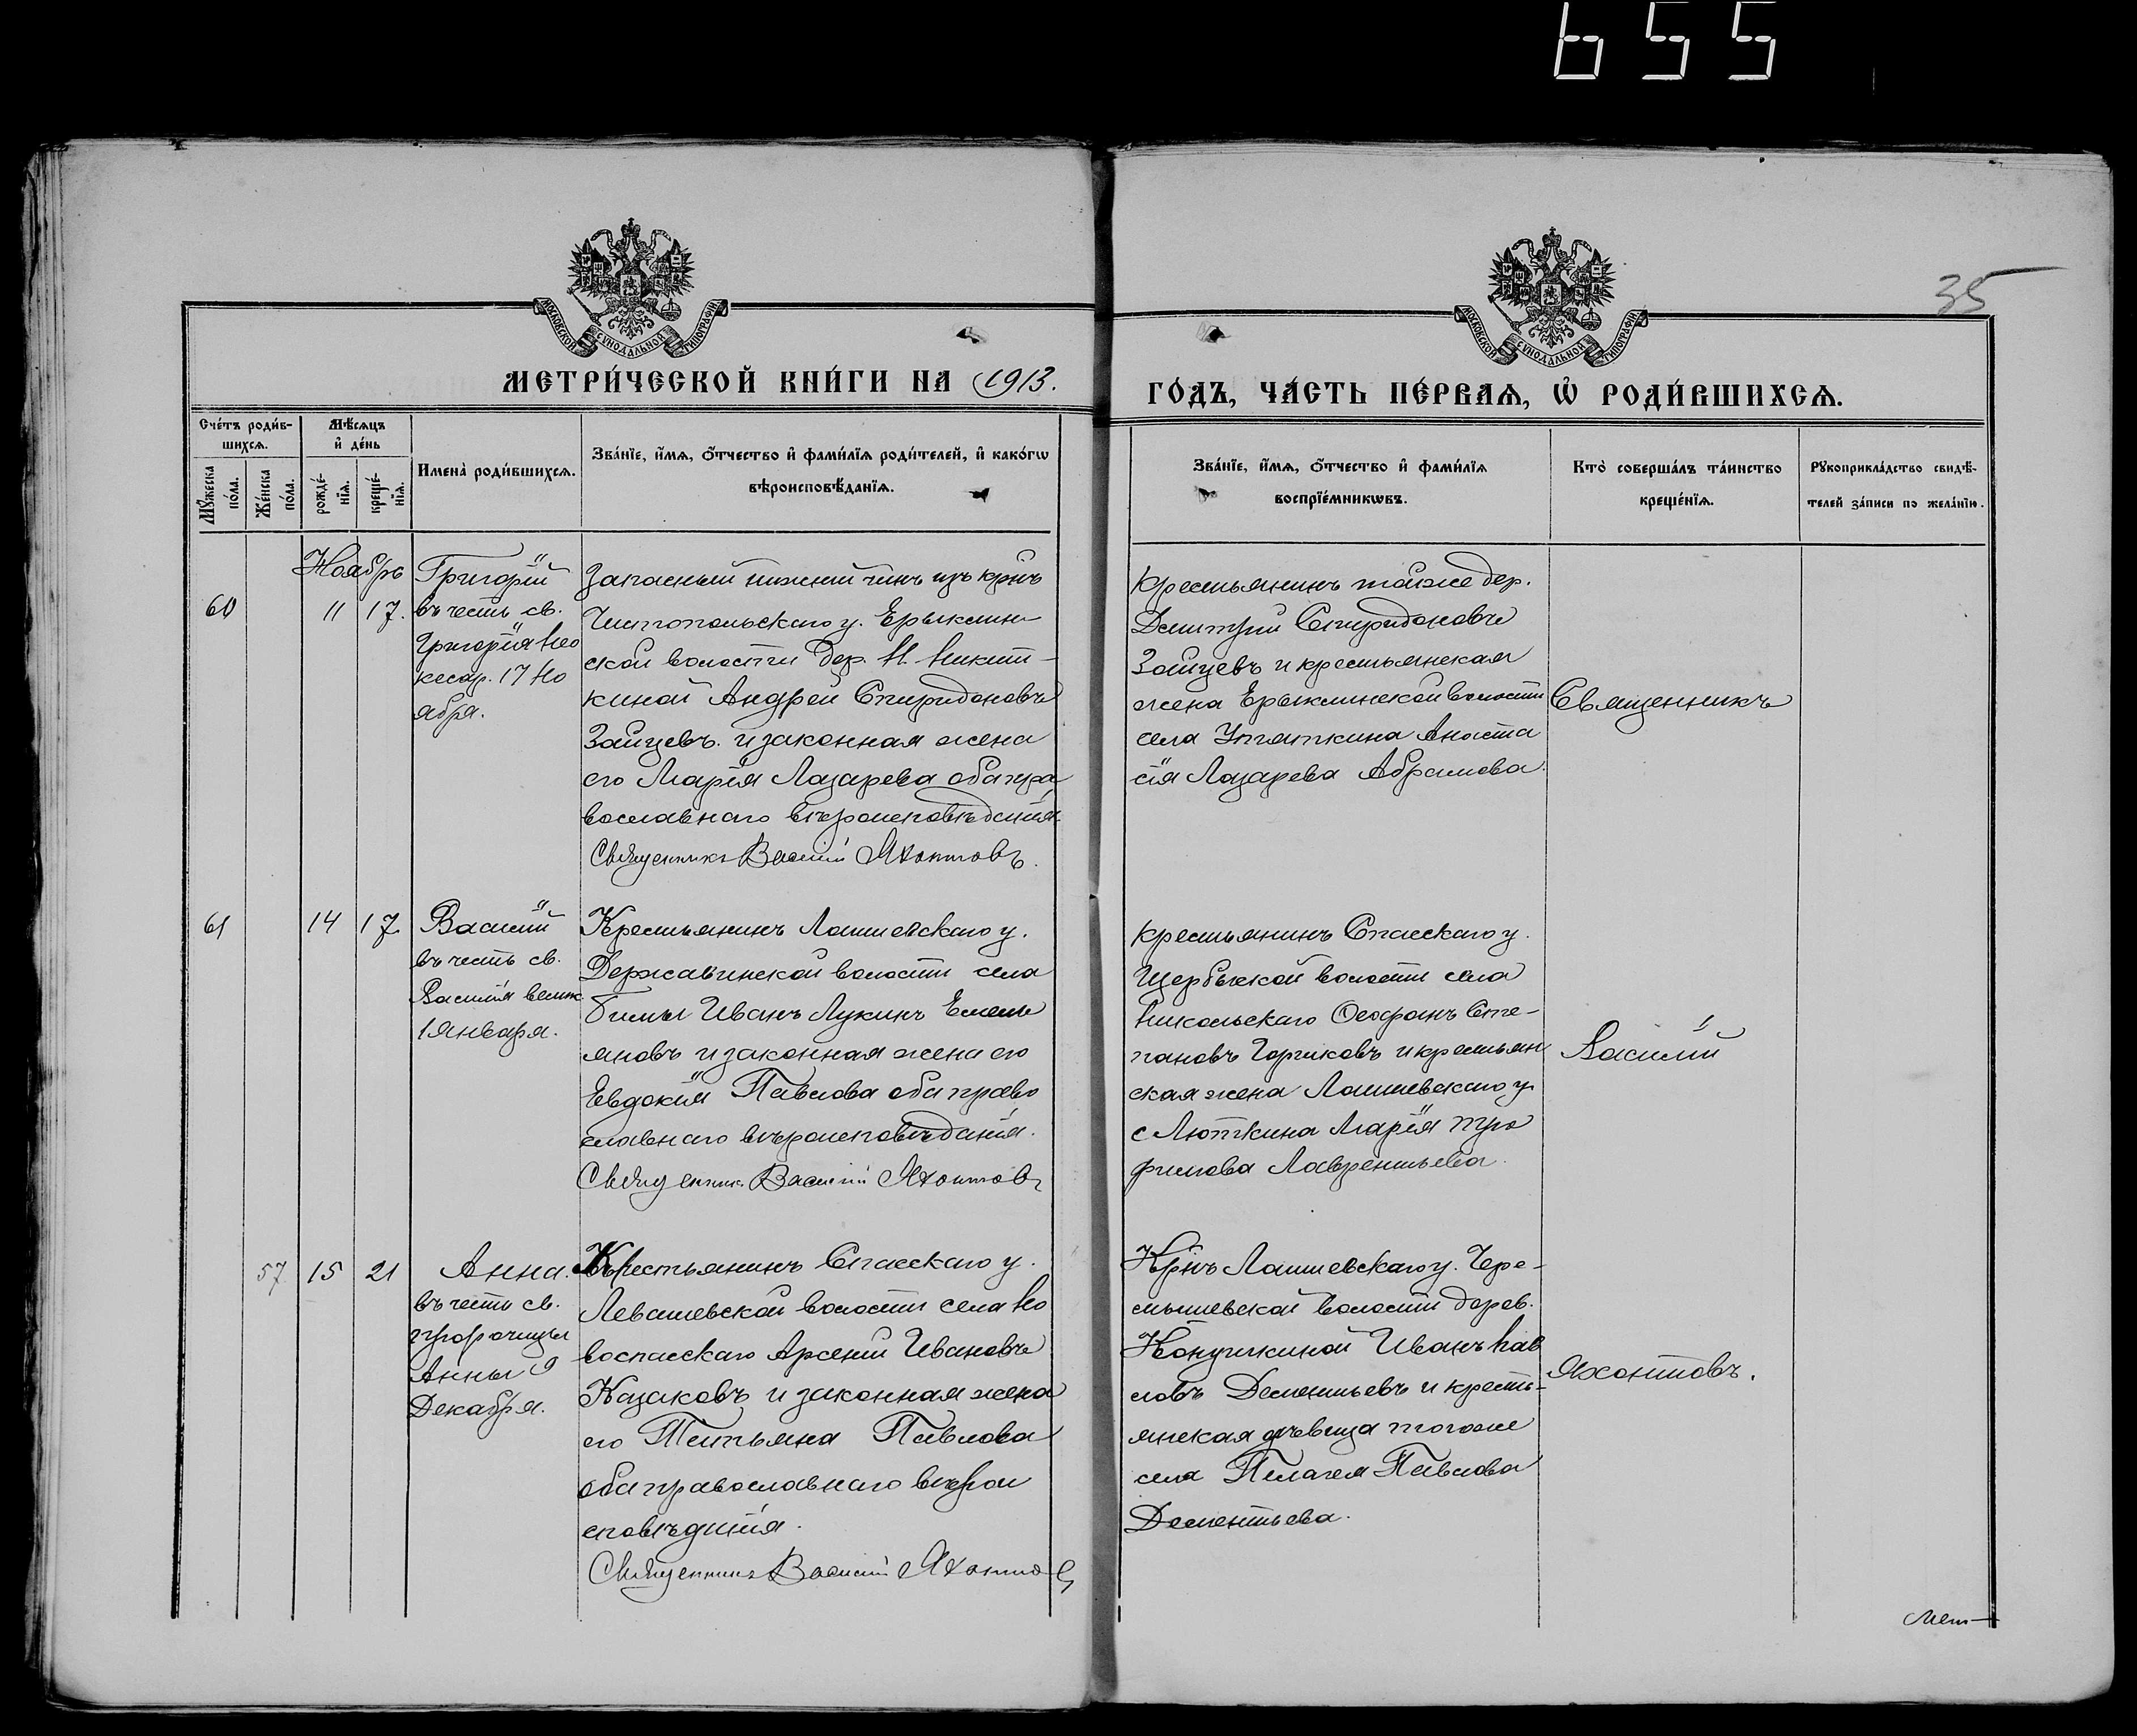 655
35
МОСКОВСКОЙ СѴНОДАЛЬНОЙ ТИПОГРАФІИ
МОСКОВСКОЙ СѴНОДАЛЬНОЙ ТИПОГРАФІИ
МЕТРИ́ЧЕСКОЙ КНИ́ГИ НА 1913.
ГО́ДЪ, ЧА́СТЬ ПЕ́РВАѦ, Ѡ҆ РОДИ́ВШИХСѦ.
Сче́тъ роди́в-
шихсѧ.
Мꙋ́жеска по́ла.
Же́нска по́ла.
Мѣ́сѧцъ
и҆ де́нь
рожде́-
нїѧ.
креще́-
нїѧ.
Имена̀ роди́вшихсѧ.
Зва́нїе, и҆́мѧ, ѻ҆́тчество и҆ фами́лїѧ роди́телей, и҆ како́гѡ
вѣроисповѣ́данїѧ.
Зва́нїе, и҆́мѧ, ѻ҆́тчество и҆ фами́лїѧ
воспрїе́мникѡвъ.
Кто̀ соверша́лъ та́инство
креще́нїѧ.
Рꙋкоприкла́дство свидѣ́-
телей за́писи по жела́нїю.
Ноябрь
60 11 17.
Григорій
въ честь св.
Григорія Нео
кесар. 17 Но
ября.
Запасный нижній чинъ изъ крнъ
Чистопольскаго у. Ерыклин-
ской волости дер. Н. Никит-
киной Андрей Спиридоновъ
Зайцевъ и законная жена
его Марія Лазарева оба пра
вославнаго вѣроисповѣданія.
Священникъ Василій Яхонтовъ.
Крестьянинъ тойже дер.
Дмитрій Спиридоновъ
Зайцевъ и крестьянская
жена Ерыклинской волости
села Утяткина Анаста
сія Лазарева Абрамова.
Священникъ
61 14 17.
Василій
въ честь св.
Василія велик.
1 Января.
Крестьянинъ Лаишевскаго у.
Державинской волости села
Бимы Иванъ Лукинъ Емель
яновъ и законная жена его
Евдокія Павлова оба право
славнаго вѣроисповѣданія.
Священник Василій Яхонтовъ
крестьянинъ Спасскаго у.
Щербетской волости села
Никольскаго Ософанъ Сте-
пановъ Горшковъ и крестьян
ская жена Лаишевскаго у.
с Люткина Марія Тро
фимова Лаврентьева.
Василій
57. 15 21
Анна.
въ честь св.
пророчицы
Анны 9
Декабря.
Крестьянинъ Спасскаго у.
Левашевской волости села Но
воспасскаго Арсеній Ивановъ
Казаковъ и законная жена
его Татьяна Павлова
оба православнаго вѣрои
сповѣданія.
Священникъ Василій Яхонтовъ
Крнъ Лаишевскаго у. Чере-
мышевской волости дерев.
Конушкиной Иванъ Пав
ловъ Дементьевъ и кресть-
янская дѣвица тогоже
села Пелагея Павлова
Дементьева.
Яхонтовъ.
Мет